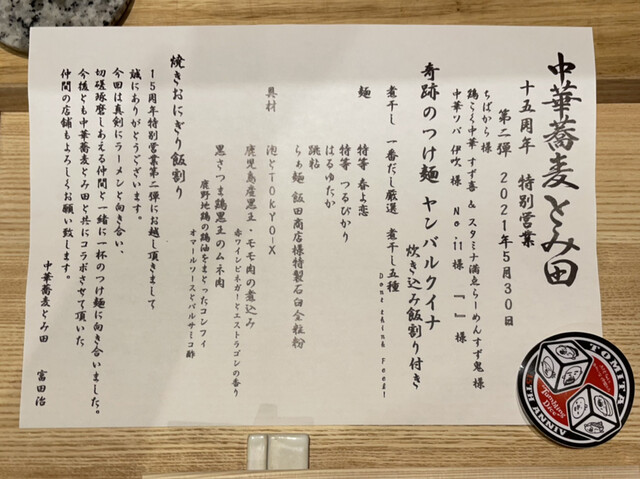 中華蕎麦とみ田
十五周年 特別営業
第二弾 2021年5月30日
ちばから様
鶏こく中華 すず喜 & スタミナ満点らーめんすず鬼 様
中華ソバ 伊吹 様 No.11 様 『 』 様
奇跡のつけ麺 ヤンバルクイナ
炊き込み飯割り付き
Dont think Feel!
煮干し 一番だし厳選 煮干し五種
麺
特等 春よ恋
特等 つるぴかり
はるゆたか
跳粘
らぁ麺 飯田商店様特製石臼全粒粉
具材
泡とTOKYO-X
鹿児島産黒王・モモ肉の煮込み
赤ワインビネガーとエストラゴンの香り
黒さつま鶏黒王のムネ肉
鹿野地鶏の鶏油をまとったコンフィ
オマールソースとバルサミコ酢
焼きおにぎり飯割り
15周年特別営業第二弾にお越し頂きまして
誠にありがとうございます。
今回は真剣にラーメンと向き合い、
切磋琢磨しあえる仲間と一緒に一杯のつけ麺に向き合いました。
今後とも中華蕎麦とみ田と共にコラボさせて頂いた
仲間の店舗もよろしくお願い致します。
中華蕎麦とみ田 富田治
TOMITA
Tumbling Dice
ANNIV